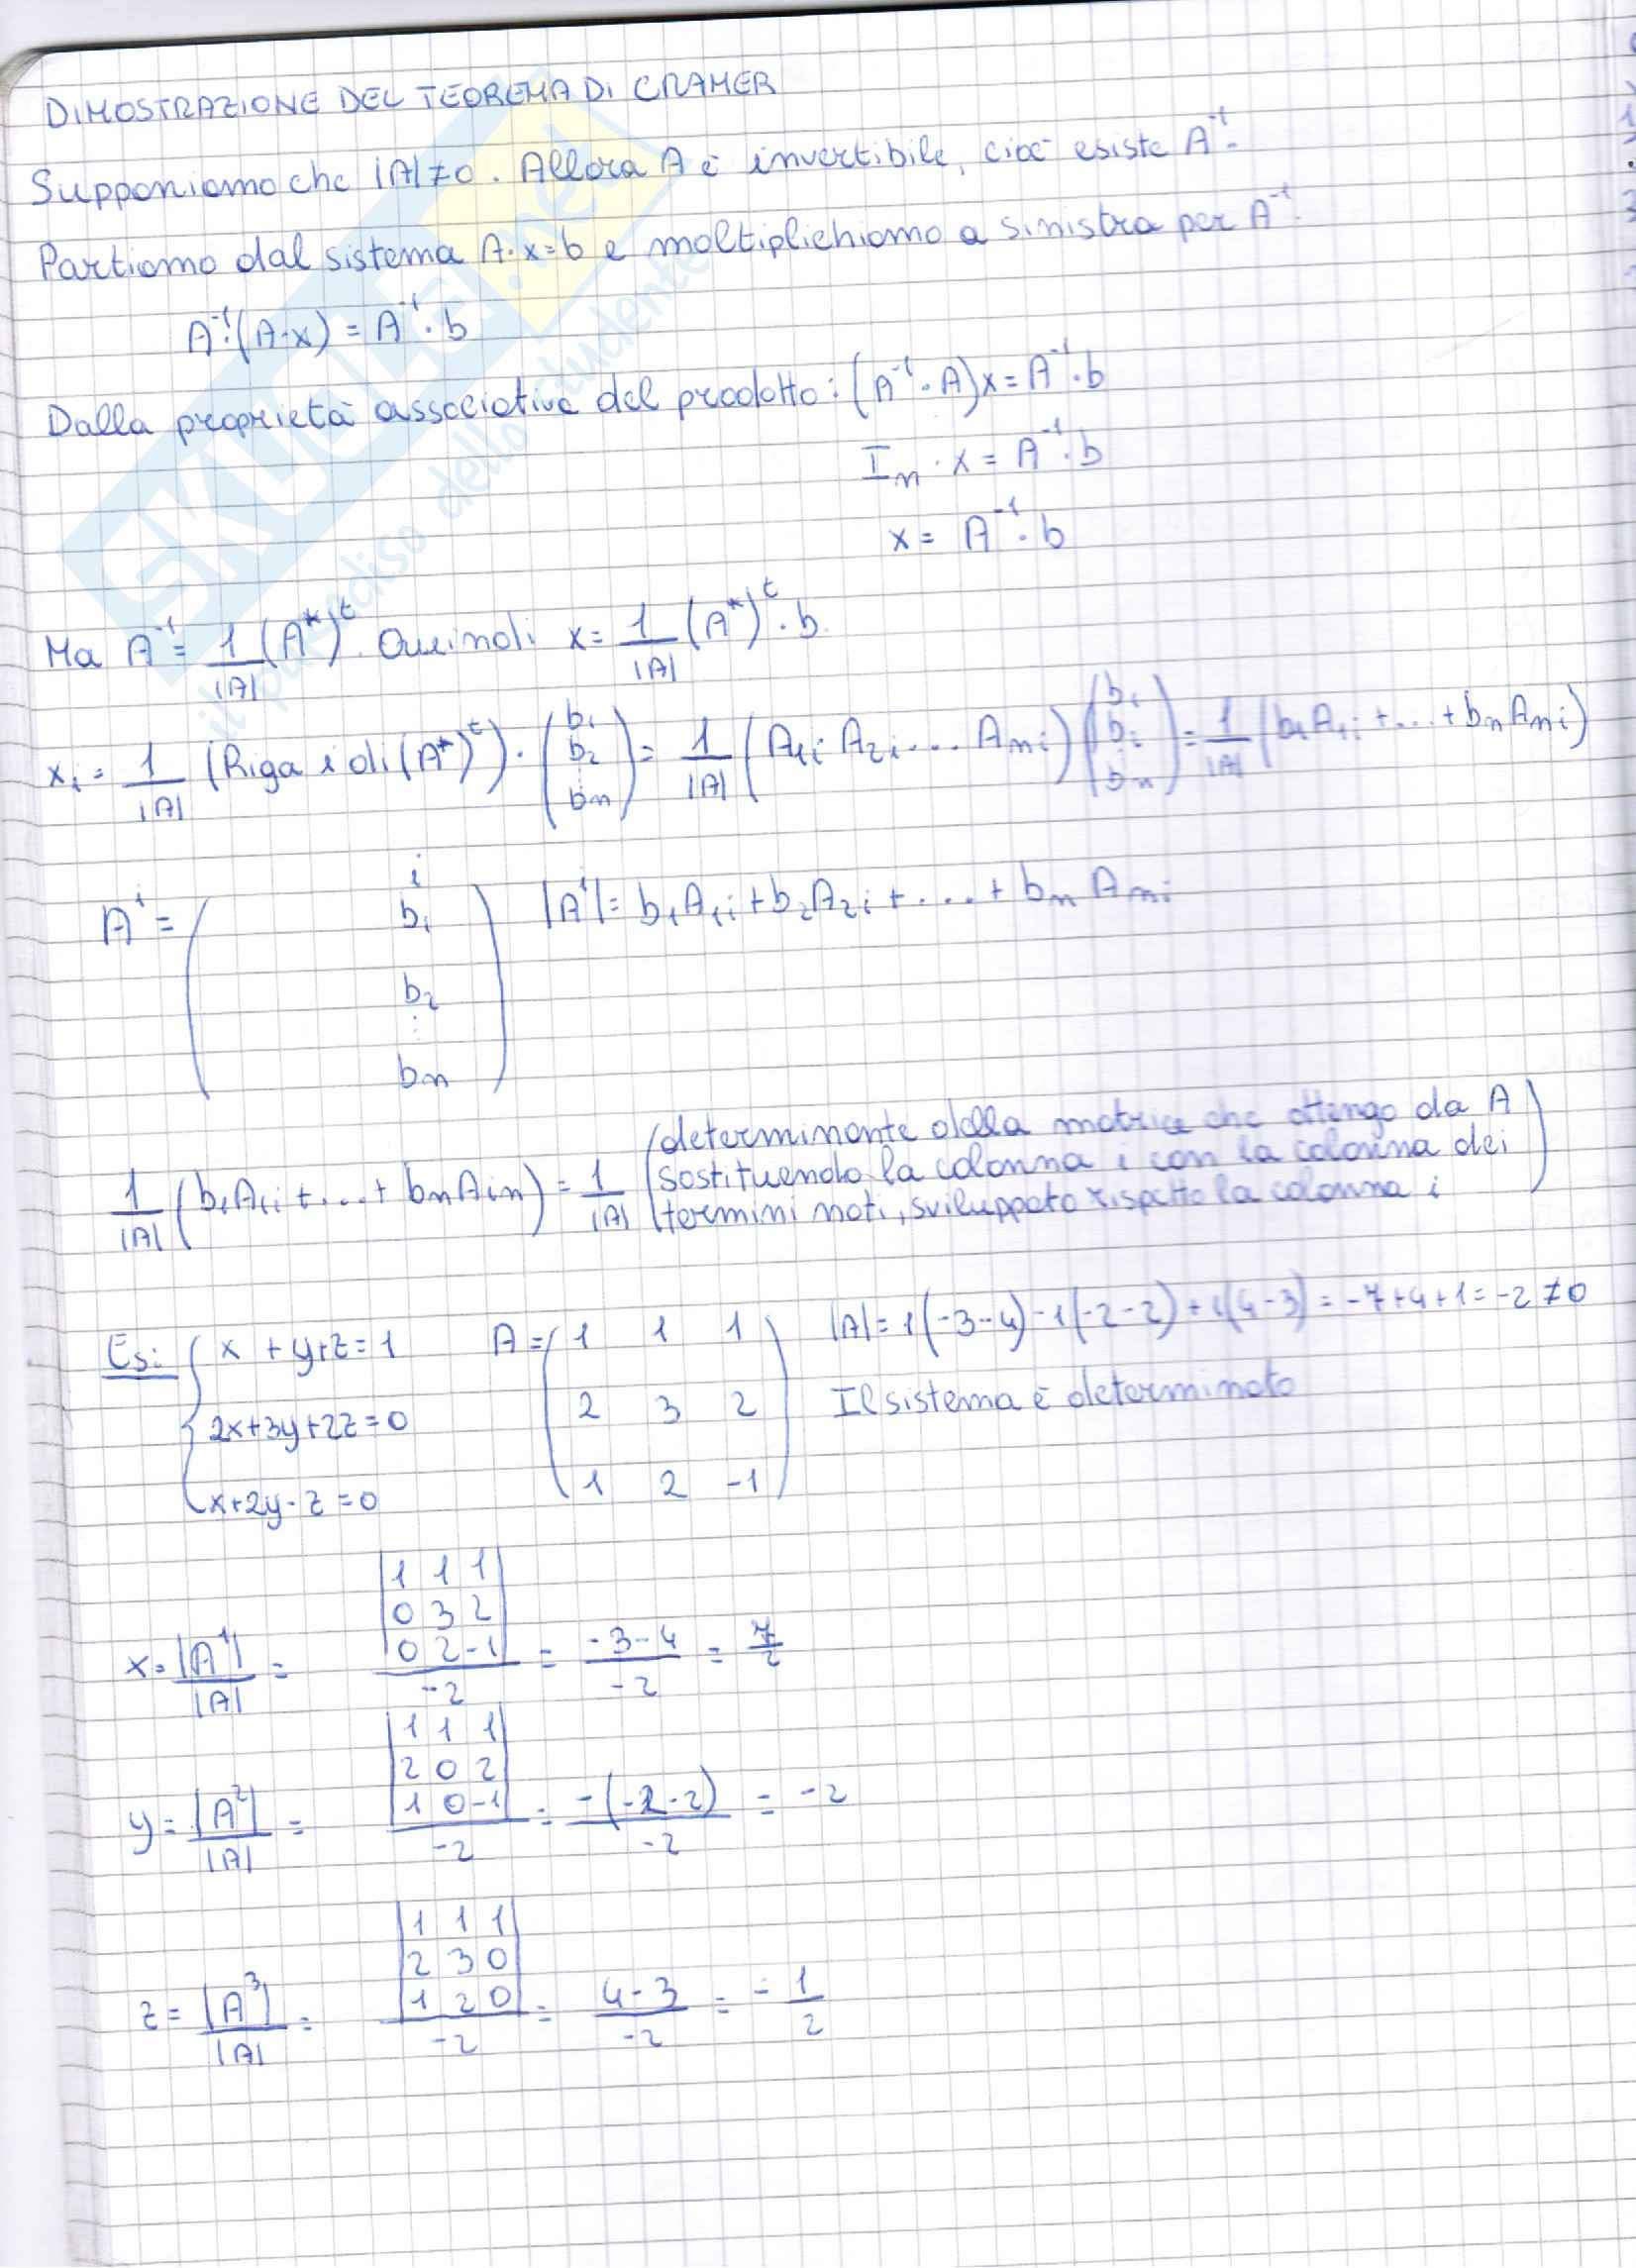 DIMOSTRAZIONE DEL TEOREMA DI CRAMER
Supponiamo che |A|≠0. Allora A è invertibile, cioè esiste A⁻¹.
Partiamo dal sistema A·x=b e moltiplichiamo a sinistra per A⁻¹.
A⁻¹·(A·x) = A⁻¹·b
Dalla proprietà associativa del prodotto: (A⁻¹·A)x = A⁻¹·b
Iₙ·x = A⁻¹·b
x = A⁻¹·b
Ma A⁻¹ = 1/|A| (A*)ᵗ. Quindi x = 1/|A| (A*)ᵗ·b.
xᵢ = 1/|A| (Riga i di (A*)ᵗ)·(b₁ b₂ ⋮ bₙ) = 1/|A| (A₁ᵢ A₂ᵢ ... Aₙᵢ)(b₁ b₂ ⋮ bₙ) = 1/|A| (b₁A₁ᵢ + ... + bₙAₙᵢ)
i
Aⁱ = ( b₁ b₂ ⋮ bₙ ) |Aⁱ| = b₁A₁ᵢ + b₂A₂ᵢ + .... + bₙAₙᵢ
1/|A| (b₁A₁ᵢ + ... + bₙAᵢₙ) = 1/|A| (determinante della matrice che ottengo da A
sostituendo la colonna i con la colonna dei
termini noti, sviluppato rispetto la colonna i)
Es: { x + y + z = 1 A = ( 1 1 1 |A| = 1(-3-4) -1(-2-2) + 1(4-3) = -7+4+1 = -2 ≠ 0
2x+3y+2z=0 2 3 2 Il sistema è determinato
x+2y-z=0 1 2 -1 )
x = |A¹|/|A| = |1 1 1
0 3 2
0 2 -1|/-2 = -3-4/-2 = 7/2
y = |A²|/|A| = |1 1 1
2 0 2
1 0 -1|/-2 = -(-2-2)/-2 = -2
z = |A³|/|A| = |1 1 1
2 3 0
1 2 0|/-2 = 4-3/-2 = -1/2
SKUOLA.net
il paradiso dello studente